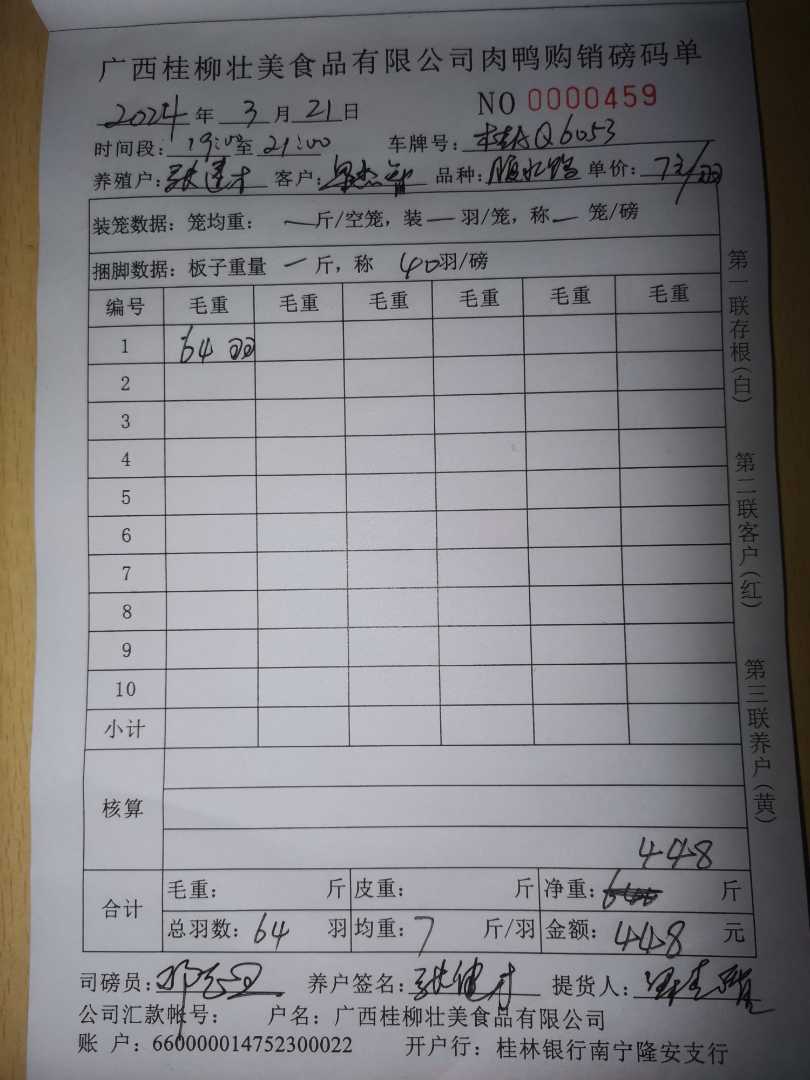 广西桂柳壮美食品有限公司肉鸭购销磅码单
2024年 3月 21日 NO 0000459
时间段：19:00至21:00 车牌号：桂AQ6053
养殖户：张健才 客户： 品种： 单价：7元/羽
装笼数据：笼均重： 一斤/空笼，装一羽/笼，称一 笼/磅
捆脚数据：板子重量 一斤，称 40羽/磅
编号 毛重 毛重 毛重 毛重 毛重 毛重
1 64羽
2
3
4
5
6
7
8
9
10
小计
核算
448
合计 毛重： 斤 皮重： 斤 净重： 斤
总羽数：64 羽 均重：7 斤/羽 金额：448 元
司磅员： 养户签名：张健才 提货人：
公司汇款帐号： 户名：广西桂柳壮美食品有限公司
账 户：660000014752300022 开户行：桂林银行南宁隆安支行
第一联存根（白）
第二联客户（红）
第三联养户（黄）